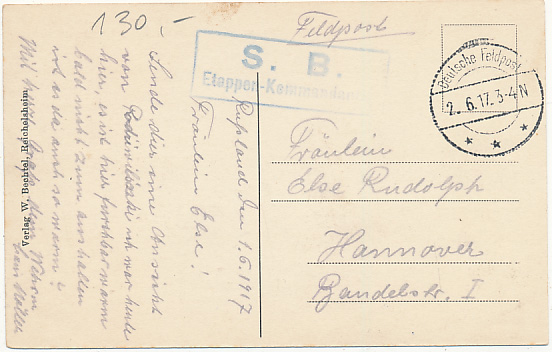 130.-
Feldpost
S. B.
Etappen-Kommandantur
Deutsche Feldpost
2. 6. 17. 3-4 N
* * *
Rußland den 1.6.1917
Fräulein Else!
Sende dir eine Ansicht
von ich war heute
hier, es ist hier furchtbar warm
bald nicht zum aushalten
ist es da auch so warm?
Mit herzl.
Fräulein
Else Rudolph
Hannover
Bandelstr. I
Verlag W. Bechtel, Reichelsheim